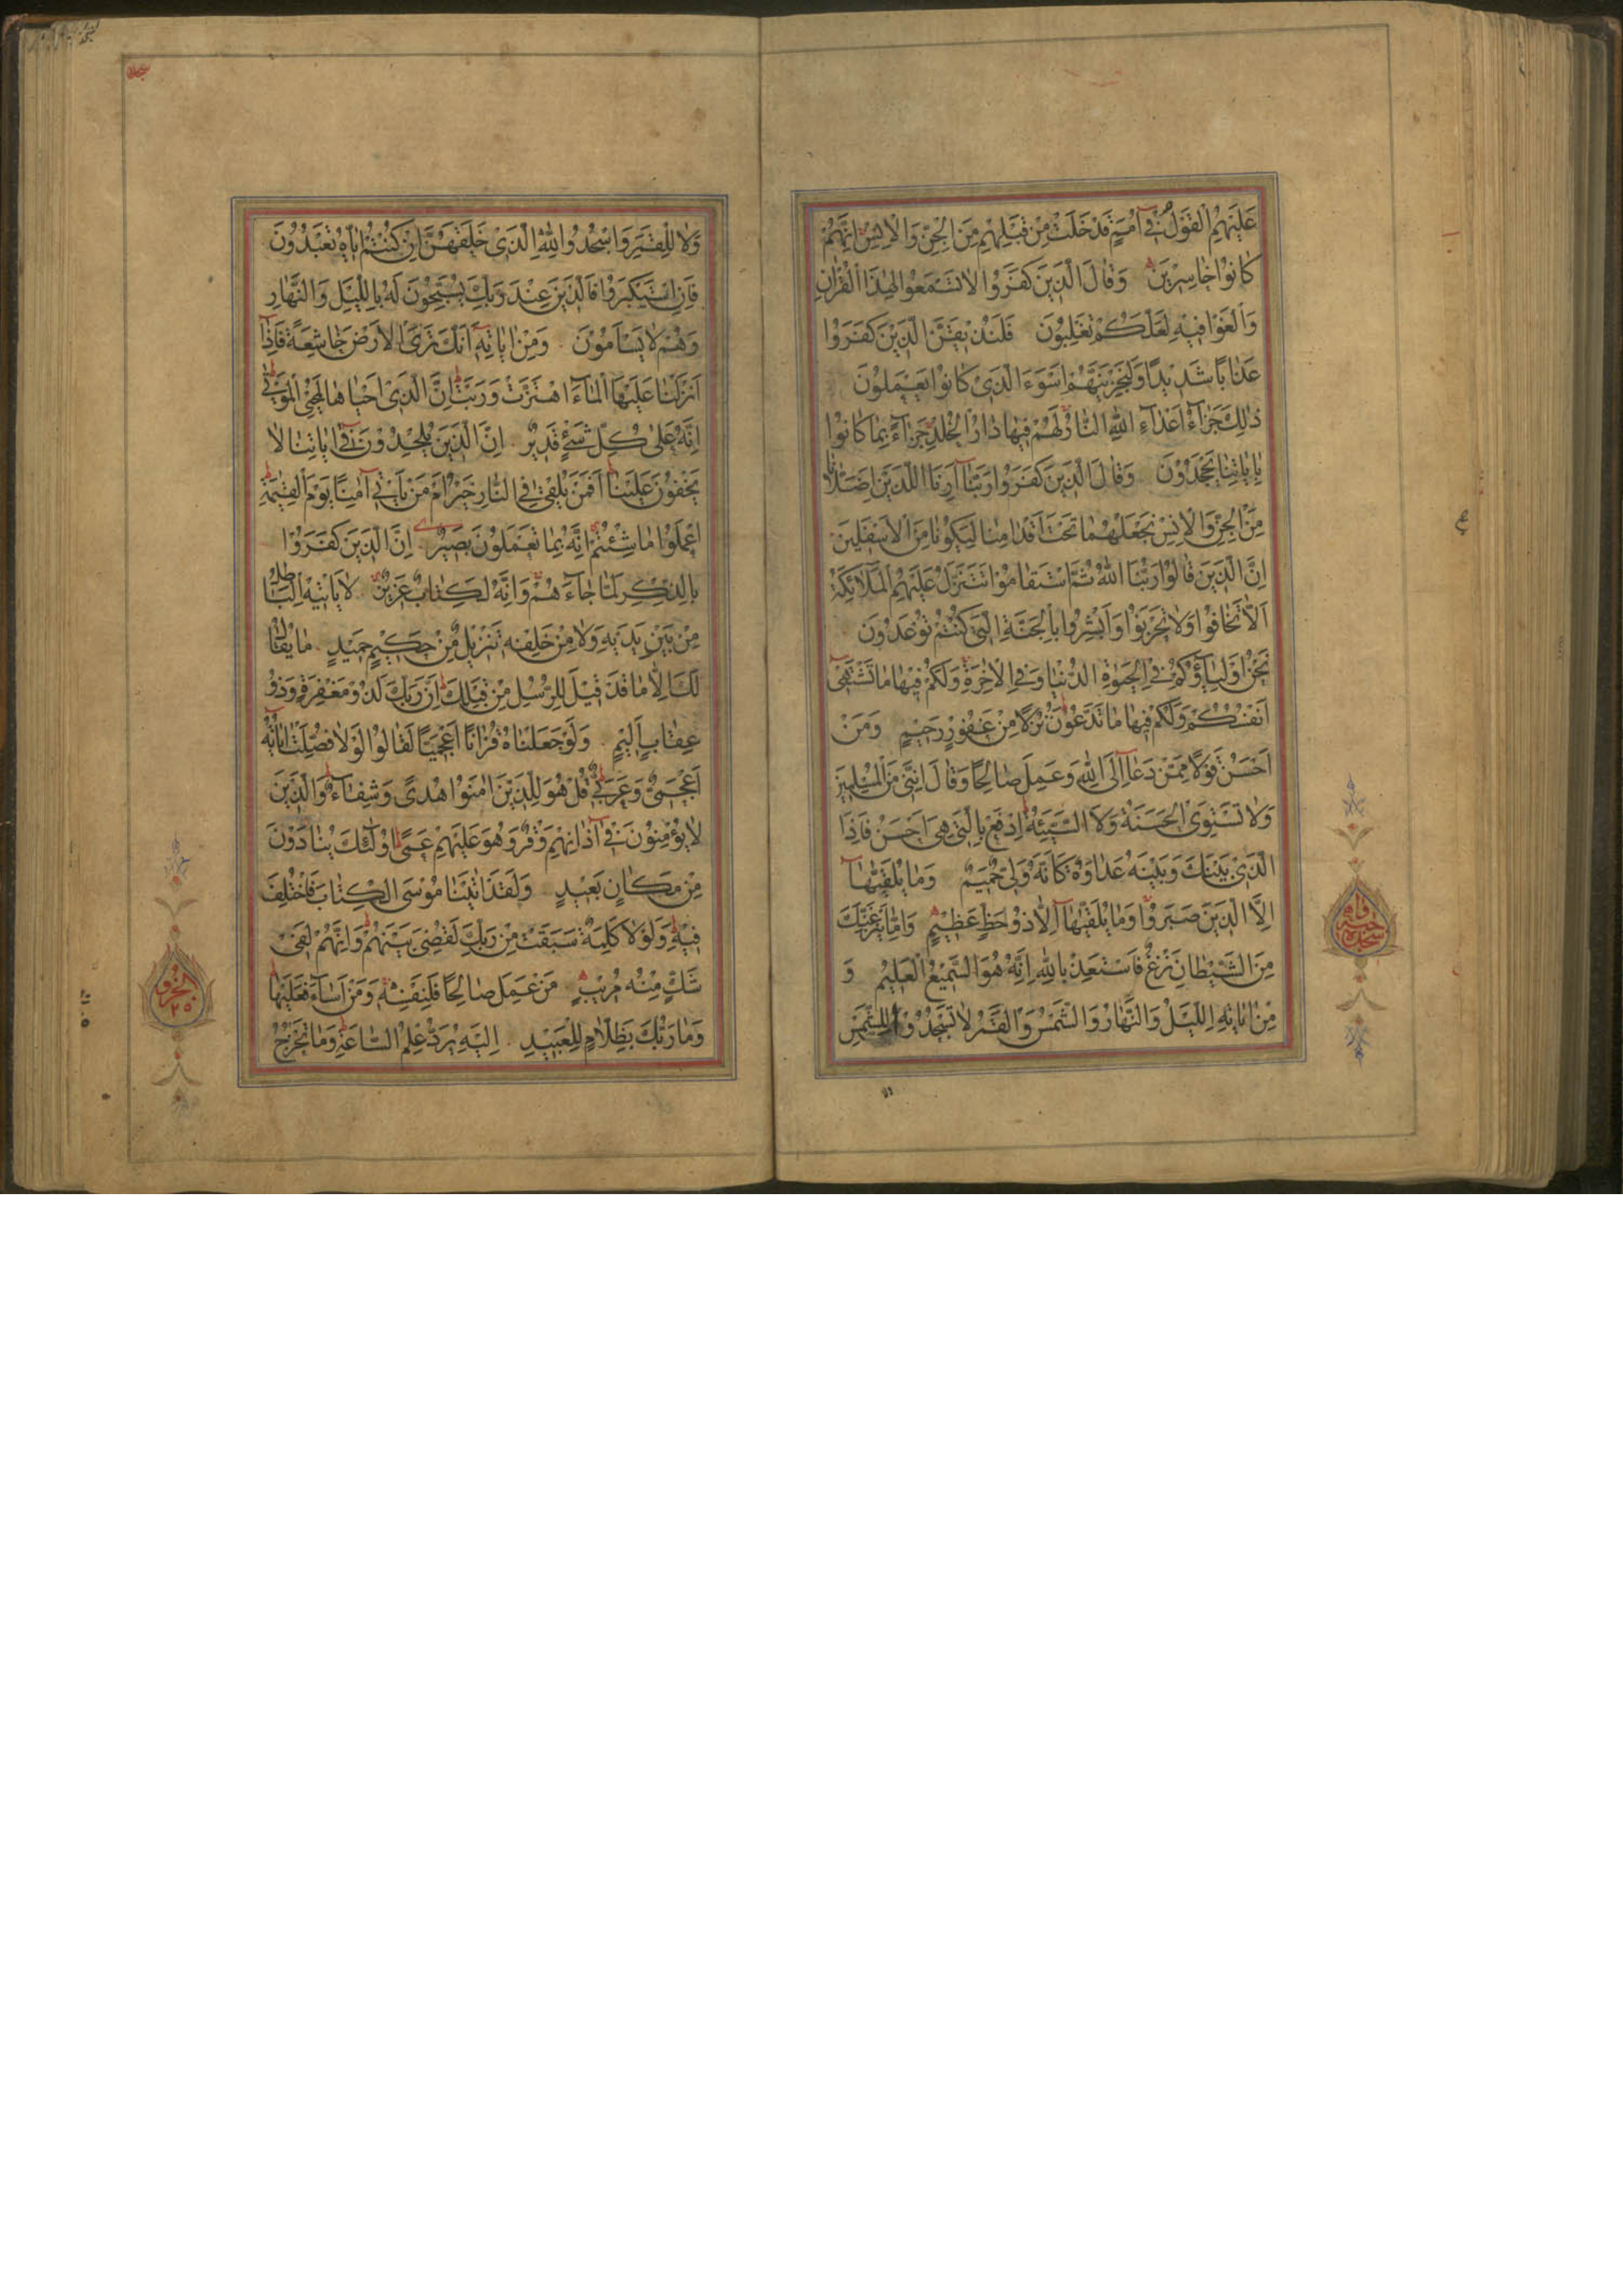 عَلَيْهِمُ الْقَوْلُ فِي أُمَمٍ قَدْ خَلَتْ مِنْ قَبْلِهِمْ مِنَ الْجِنِّ وَالْاِنْسِ اِنَّهُمْ
كَانُوا خَاسِرِينَ وَقَالَ الَّذِينَ كَفَرُوا لَا تَسْمَعُوا لِهٰذَا الْقُرْاٰنِ
وَالْغَوْا فِيهِ لَعَلَّكُمْ تَغْلِبُونَ فَلَنُذِيقَنَّ الَّذِينَ كَفَرُوا
عَذَابًا شَدِيدًا وَلَنَجْزِيَنَّهُمْ اَسْوَءَ الَّذِي كَانُوا يَعْمَلُونَ
ذٰلِكَ جَزَآءُ اَعْدَآءِ اللهِ النَّارُ لَهُمْ فِيهَا دَارُ الْخُلْدِ جَزَآءً بِمَا كَانُوا
بِاٰيَاتِنَا يَجْحَدُونَ وَقَالَ الَّذِينَ كَفَرُوا رَبَّنَآ اَرِنَا اللَّذَيْنِ اَضَلَّانَا
مِنَ الْجِنِّ وَالْاِنْسِ نَجْعَلْهُمَا تَحْتَ اَقْدَامِنَا لِيَكُونَا مِنَ الْاَسْفَلِينَ
اِنَّ الَّذِينَ قَالُوا رَبُّنَا اللهُ ثُمَّ اسْتَقَامُوا تَتَنَزَّلُ عَلَيْهِمُ الْمَلَائِكَةُ
اَلَّا تَخَافُوا وَلَا تَحْزَنُوا وَاَبْشِرُوا بِالْجَنَّةِ الَّتِي كُنْتُمْ تُوعَدُونَ
نَحْنُ اَوْلِيَآؤُكُمْ فِي الْحَيٰوةِ الدُّنْيَا وَفِي الْاٰخِرَةِ وَلَكُمْ فِيهَا مَا تَشْتَهِي
اَنْفُسُكُمْ وَلَكُمْ فِيهَا مَا تَدَّعُونَ نُزُلًا مِنْ غَفُورٍ رَحِيمٍ وَمَنْ
اَحْسَنُ قَوْلًا مِمَّنْ دَعَآ اِلَى اللهِ وَعَمِلَ صَالِحًا وَقَالَ اِنَّنِي مِنَ الْمُسْلِمِينَ
وَلَا تَسْتَوِي الْحَسَنَةُ وَلَا السَّيِّئَةُ اِدْفَعْ بِالَّتِي هِيَ اَحْسَنُ فَاِذَا
الَّذِي بَيْنَكَ وَبَيْنَهُ عَدَاوَةٌ كَاَنَّهُ وَلِيٌّ حَمِيمٌ وَمَا يُلَقّٰيهَآ
اِلَّا الَّذِينَ صَبَرُوا وَمَا يُلَقّٰيهَآ اِلَّا ذُو حَظٍّ عَظِيمٍ وَاِمَّا يَنْزَغَنَّكَ
مِنَ الشَّيْطَانِ نَزْغٌ فَاسْتَعِذْ بِاللهِ اِنَّهُ هُوَ السَّمِيعُ الْعَلِيمُ وَ
مِنْ اٰيَاتِهِ اللَّيْلُ وَالنَّهَارُ وَالشَّمْسُ وَالْقَمَرُ لَا تَسْجُدُوا لِلشَّمْسِ
سجده واجبه
وَلَا لِلْقَمَرِ وَاسْجُدُوا لِلهِ الَّذِي خَلَقَهُنَّ اِنْ كُنْتُمْ اِيَّاهُ تَعْبُدُونَ
فَاِنِ اسْتَكْبَرُوا فَالَّذِينَ عِنْدَ رَبِّكَ يُسَبِّحُونَ لَهُ بِاللَّيْلِ وَالنَّهَارِ
وَهُمْ لَا يَسْاَمُونَ وَمِنْ اٰيَاتِهِ اَنَّكَ تَرَى الْاَرْضَ خَاشِعَةً فَاِذَآ
اَنْزَلْنَا عَلَيْهَا الْمَآءَ اهْتَزَّتْ وَرَبَتْ اِنَّ الَّذِي اَحْيَاهَا لَمُحْيِ الْمَوْتٰى
اِنَّهُ عَلٰى كُلِّ شَيْءٍ قَدِيرٌ اِنَّ الَّذِينَ يُلْحِدُونَ فِي اٰيَاتِنَا لَا
يَخْفَوْنَ عَلَيْنَا اَفَمَنْ يُلْقٰى فِي النَّارِ خَيْرٌ اَمْ مَنْ يَاْتِي اٰمِنًا يَوْمَ الْقِيٰمَةِ
اِعْمَلُوا مَا شِئْتُمْ اِنَّهُ بِمَا تَعْمَلُونَ بَصِيرٌ اِنَّ الَّذِينَ كَفَرُوا
بِالذِّكْرِ لَمَّا جَآءَهُمْ وَاِنَّهُ لَكِتَابٌ عَزِيزٌ لَا يَاْتِيهِ الْبَاطِلُ
مِنْ بَيْنِ يَدَيْهِ وَلَا مِنْ خَلْفِهِ تَنْزِيلٌ مِنْ حَكِيمٍ حَمِيدٍ مَا يُقَالُ
لَكَ اِلَّا مَا قَدْ قِيلَ لِلرُّسُلِ مِنْ قَبْلِكَ اِنَّ رَبَّكَ لَذُو مَغْفِرَةٍ وَذُو
عِقَابٍ اَلِيمٍ وَلَوْ جَعَلْنَاهُ قُرْاٰنًا اَعْجَمِيًّا لَقَالُوا لَوْلَا فُصِّلَتْ اٰيَاتُهُ
ءَاَعْجَمِيٌّ وَعَرَبِيٌّ قُلْ هُوَ لِلَّذِينَ اٰمَنُوا هُدًى وَشِفَآءٌ وَالَّذِينَ
لَا يُؤْمِنُونَ فِي اٰذَانِهِمْ وَقْرٌ وَهُوَ عَلَيْهِمْ عَمًى اُولٰٓئِكَ يُنَادَوْنَ
مِنْ مَكَانٍ بَعِيدٍ وَلَقَدْ اٰتَيْنَا مُوسَى الْكِتَابَ فَاخْتُلِفَ
فِيهِ وَلَوْلَا كَلِمَةٌ سَبَقَتْ مِنْ رَبِّكَ لَقُضِيَ بَيْنَهُمْ وَاِنَّهُمْ لَفِي
شَكٍّ مِنْهُ مُرِيبٍ مَنْ عَمِلَ صَالِحًا فَلِنَفْسِهِ وَمَنْ اَسَآءَ فَعَلَيْهَا
وَمَا رَبُّكَ بِظَلَّامٍ لِلْعَبِيدِ اِلَيْهِ يُرَدُّ عِلْمُ السَّاعَةِ وَمَا تَخْرُجُ
الجزو
٢٥